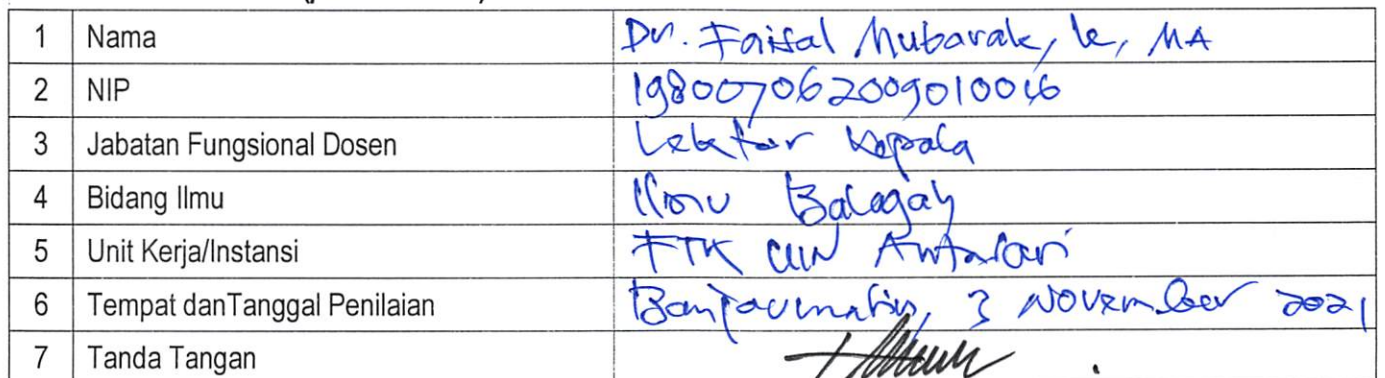 1 Nama Dr. Faisal Mubarak, Lc, MA
2 NIP 198007062009010016
3 Jabatan Fungsional Dosen Lektor Kepala
4 Bidang Ilmu Ilmu Balagah
5 Unit Kerja/Instansi FTK UIN Antasari
6 Tempat danTanggal Penilaian Banjarmasin, 3 November 2021
7 Tanda Tangan